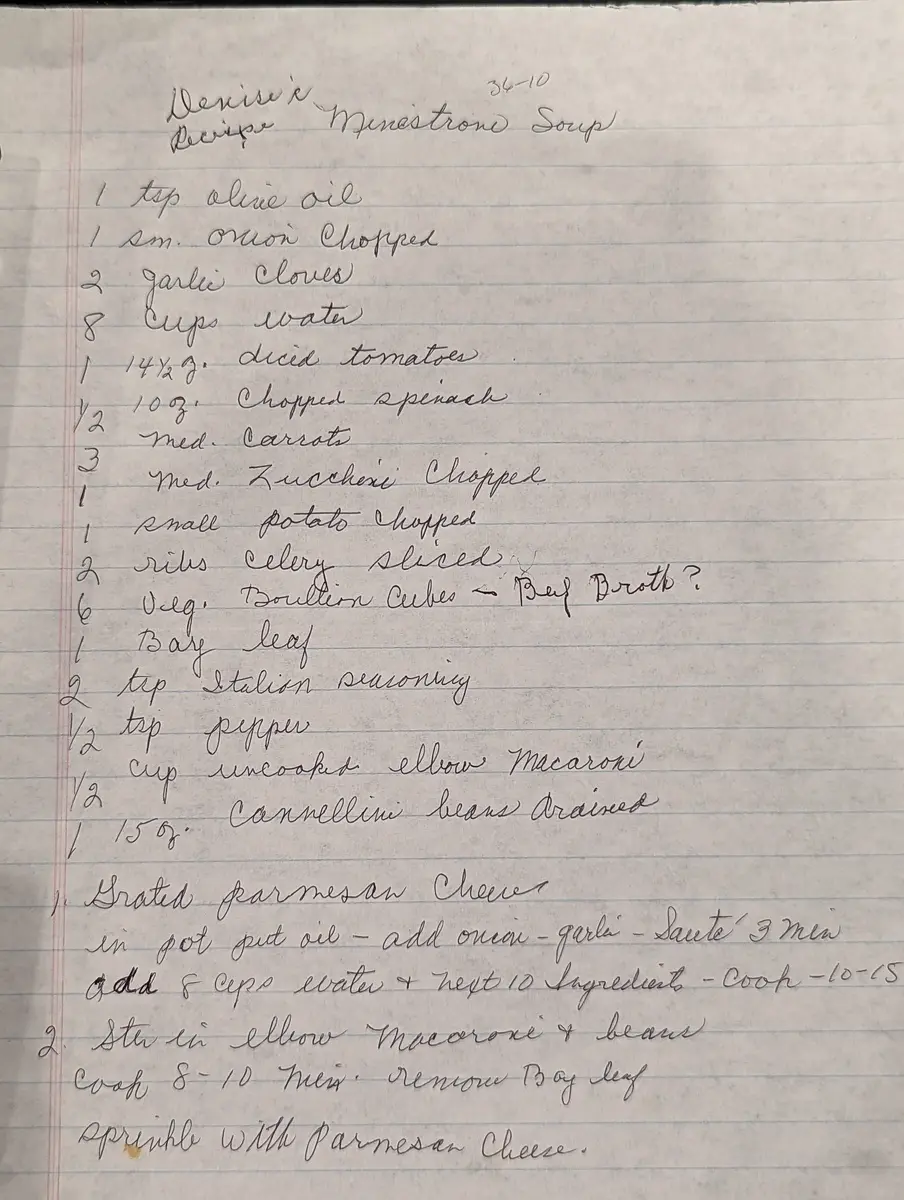 36-10
Denise's Minestrone Soup
Recipe
1 tsp olive oil
1 sm. onion Chopped
2 garlic cloves
8 cups water
1 14½ oz. diced tomatoes
1/2 10 oz. Chopped spinach
3 med. Carrots
1 med. Zucchini Chopped
1 small potato chopped
2 ribs celery sliced
6 Veg. Boullion Cubes - Beef Broth?
1 Bay leaf
2 tsp Italian seasoning
1/2 tsp pepper
1/2 cup uncooked elbow Macaroni
1 15 oz. Cannellini beans Drained
1. Grated parmesan Cheese
in pot put oil - add onion - garlic - Sauté 3 min
add 8 cups water + next 10 Ingredients - cook - 10-15
2. Stir in elbow Macaroni + beans
Cook 8-10 Min. remove Bay leaf
sprinkle with Parmesan Cheese.